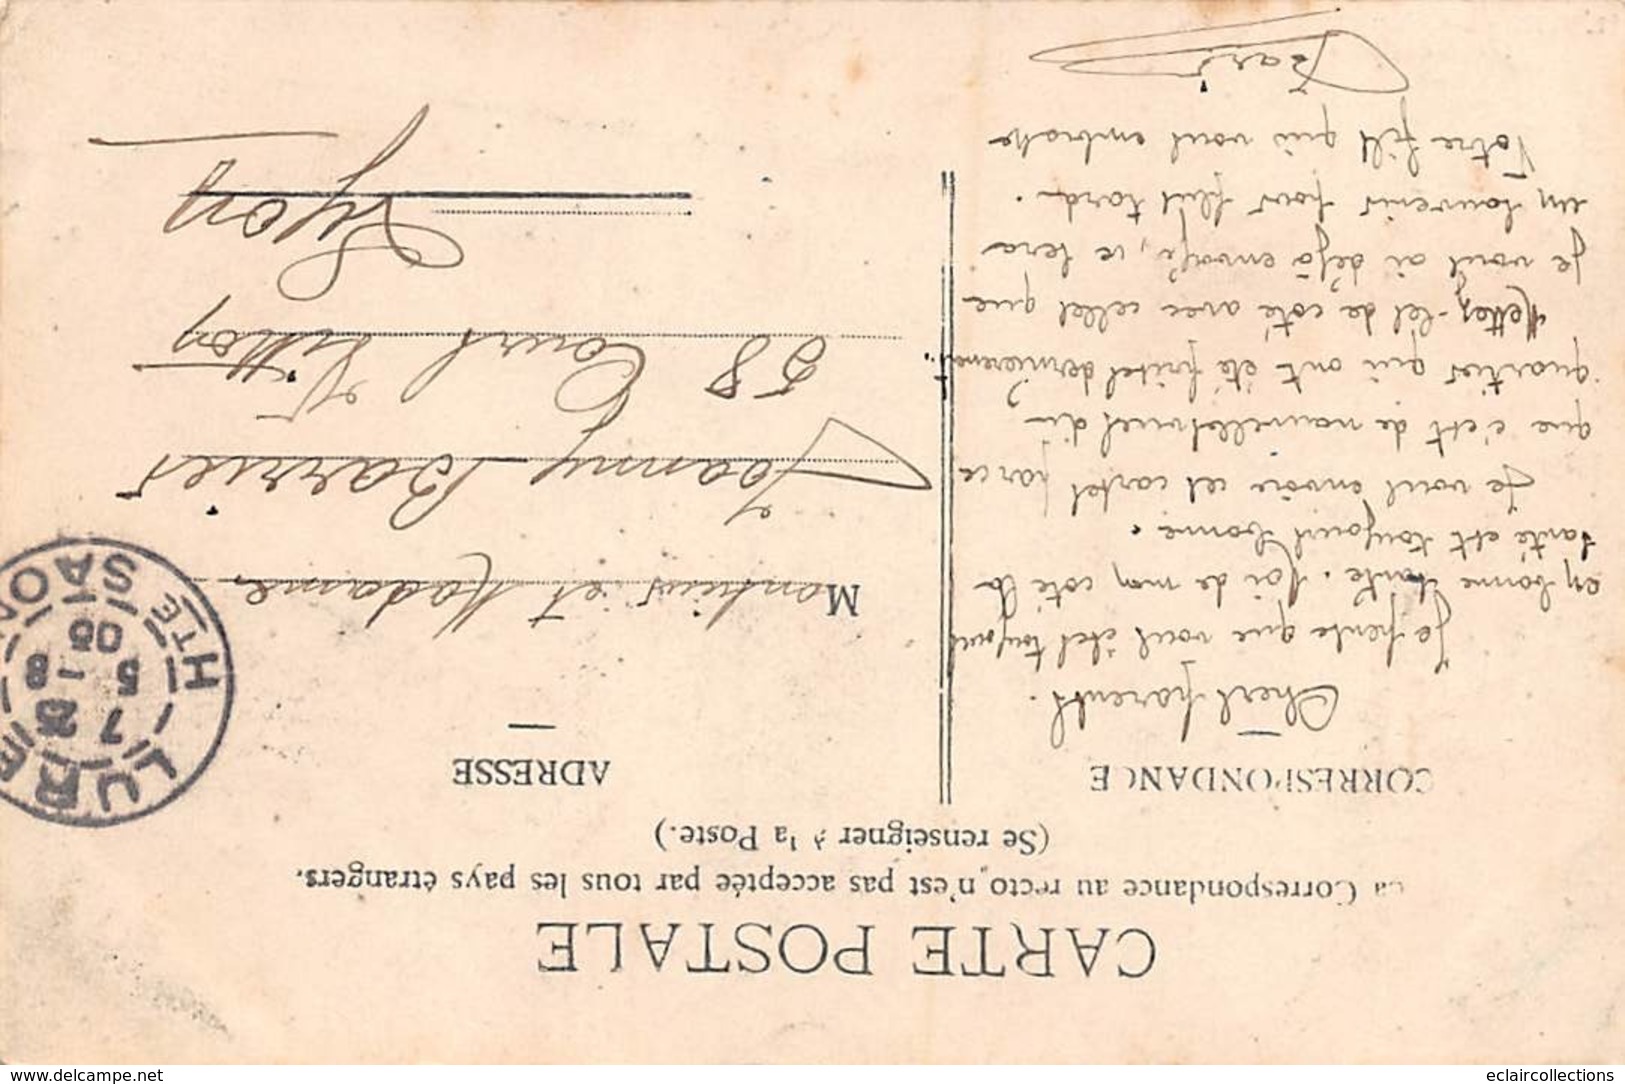 CARTE POSTALE
La Correspondance au recto, n'est pas acceptée par tous les pays étrangers.
(Se renseigner à la Poste.)
CORRESPONDANCE
Chers parents.
Je pense que vous êtes toujours
en bonne santé. Moi de mon coté la
santé est toujours bonne.
Je vous envoie ces cartes parce
que c'est de nouvelles vues du
quartier qui ont été prises dernièrement.
Mettez-les de coté avec celles que
je vous ai déjà envoyé, ce sera
un souvenir pour plus tard.
Votre fils qui vous embrasse
ADRESSE
M onsieur et Madame
Joanny Barrier
58 Cours Vitton
Lyon
LURE
HTE SAON
7 25
5 -8
05
www.delcampe.net
eclaircollections